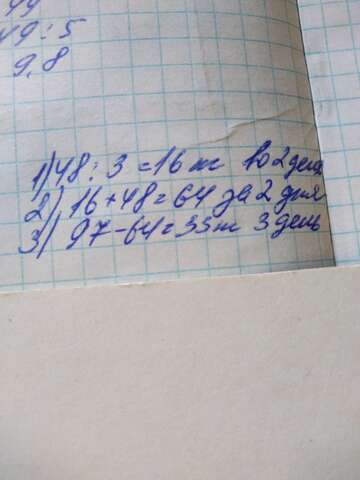 49
49:5
9,8
1) 48:3=16 т во 2 день
2) 16+48=64 за 2 дня
3) 97-64=33т 3 день